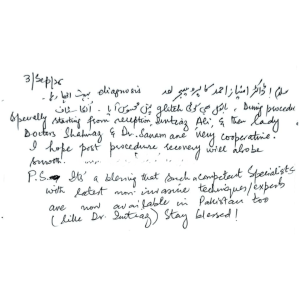 3/Sep/26
ڈاکٹر امتیاز احمد کا پروسیجر اور diagnosis بہت
glitch During procedure
Specially starting from reception Imtiaz Ali, & then Lady
Doctors Shahnaz & Dr. Sanam are very cooperative.
I hope post procedure recovery will also be
smooth.
P.S. Its' a blessing that such a competent Specialists
with latest non invasive techniques/experts
are now available in Pakistan too
(like Dr. Imtiaz) Stay blessed!